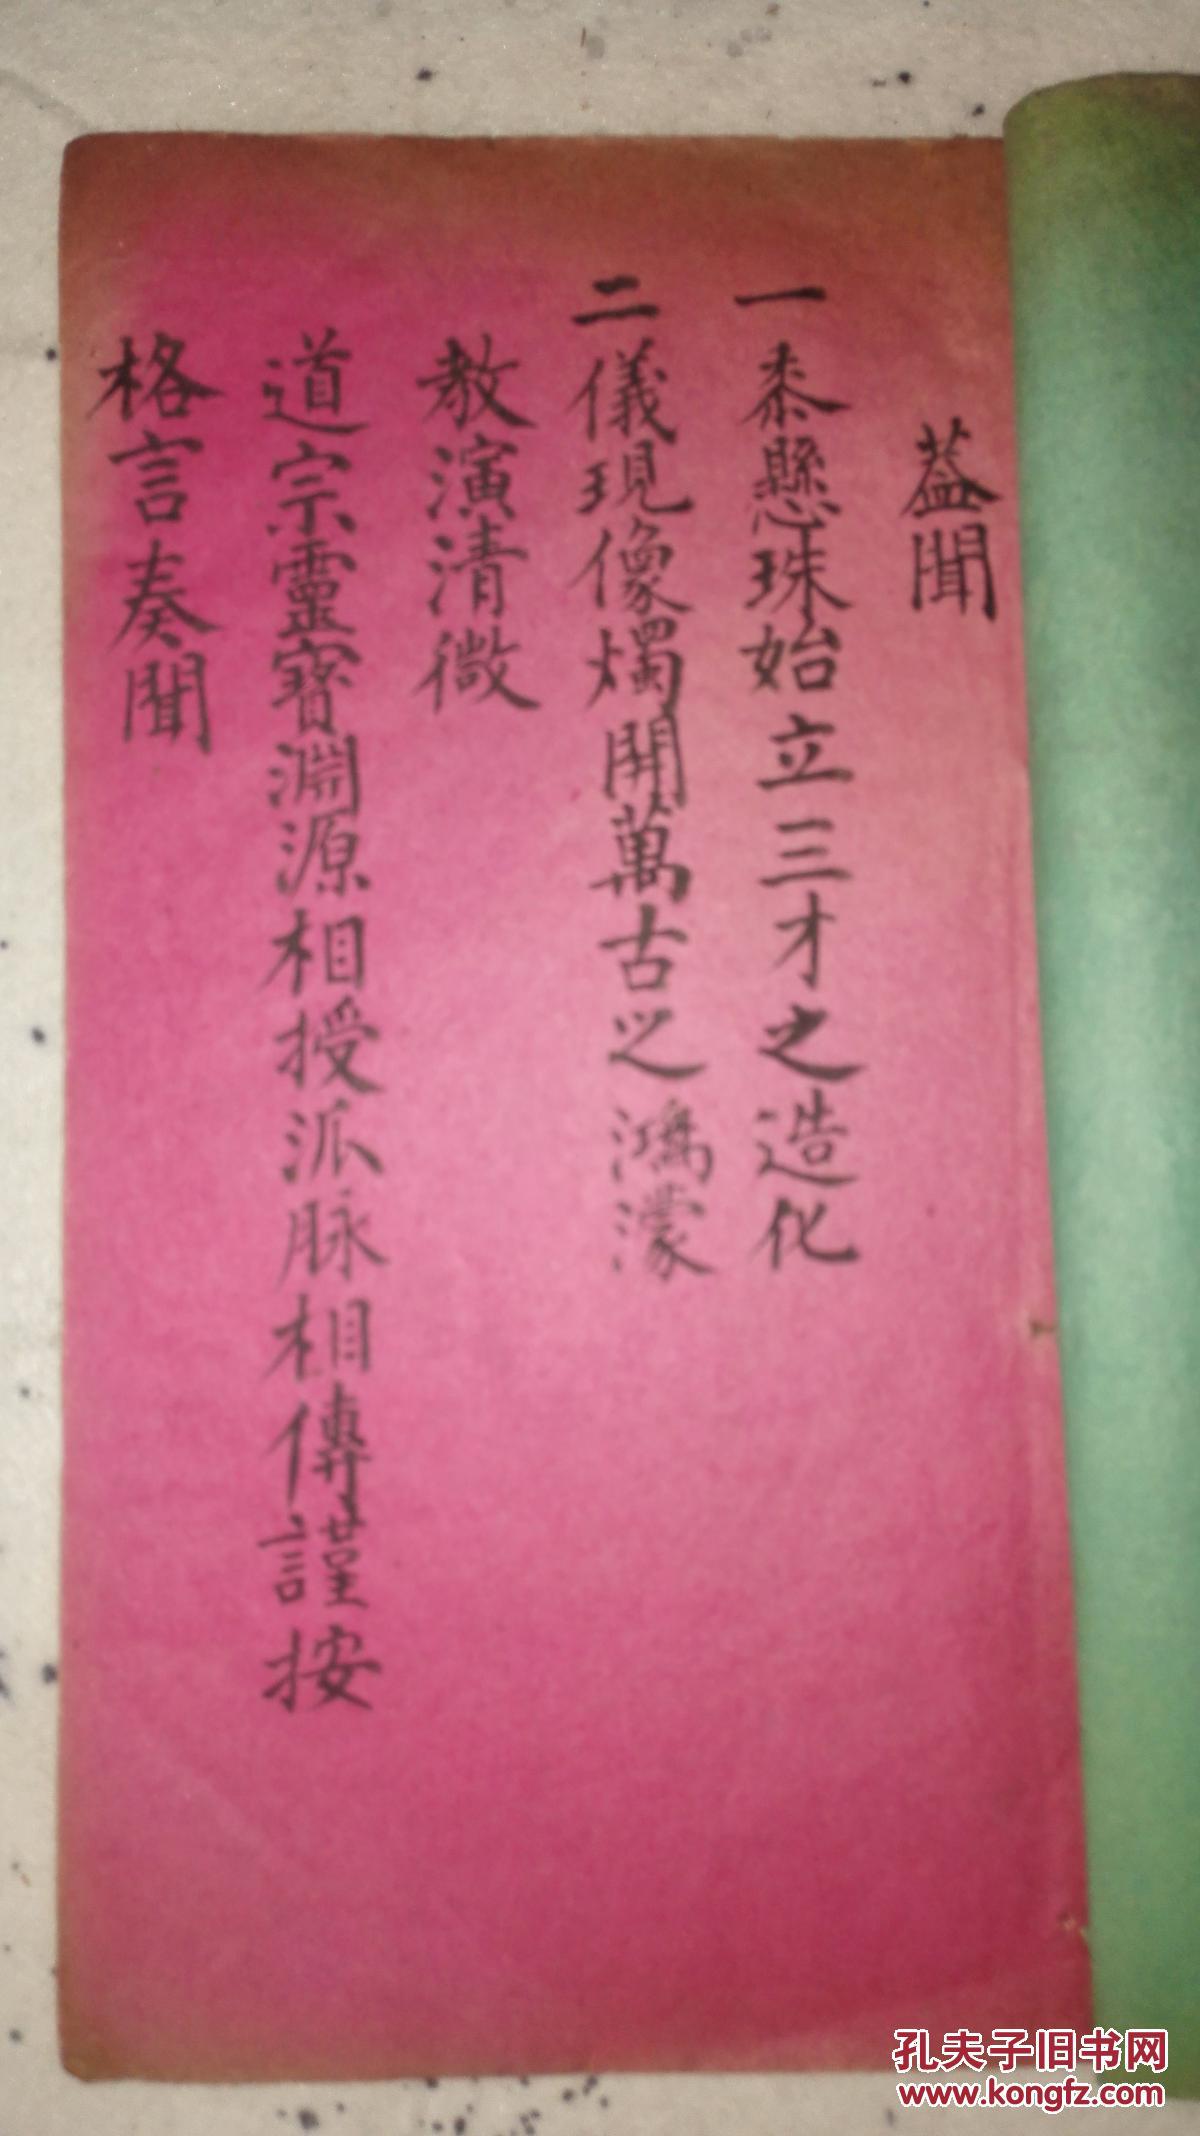 蓋聞
一黍懸珠始立三才之造化
二儀現像燭開萬古之鴻濛
教演清微
道宗靈寶淵源相授派脉相傳謹按
格言奏聞
孔夫子旧书网
www.kongfz.com